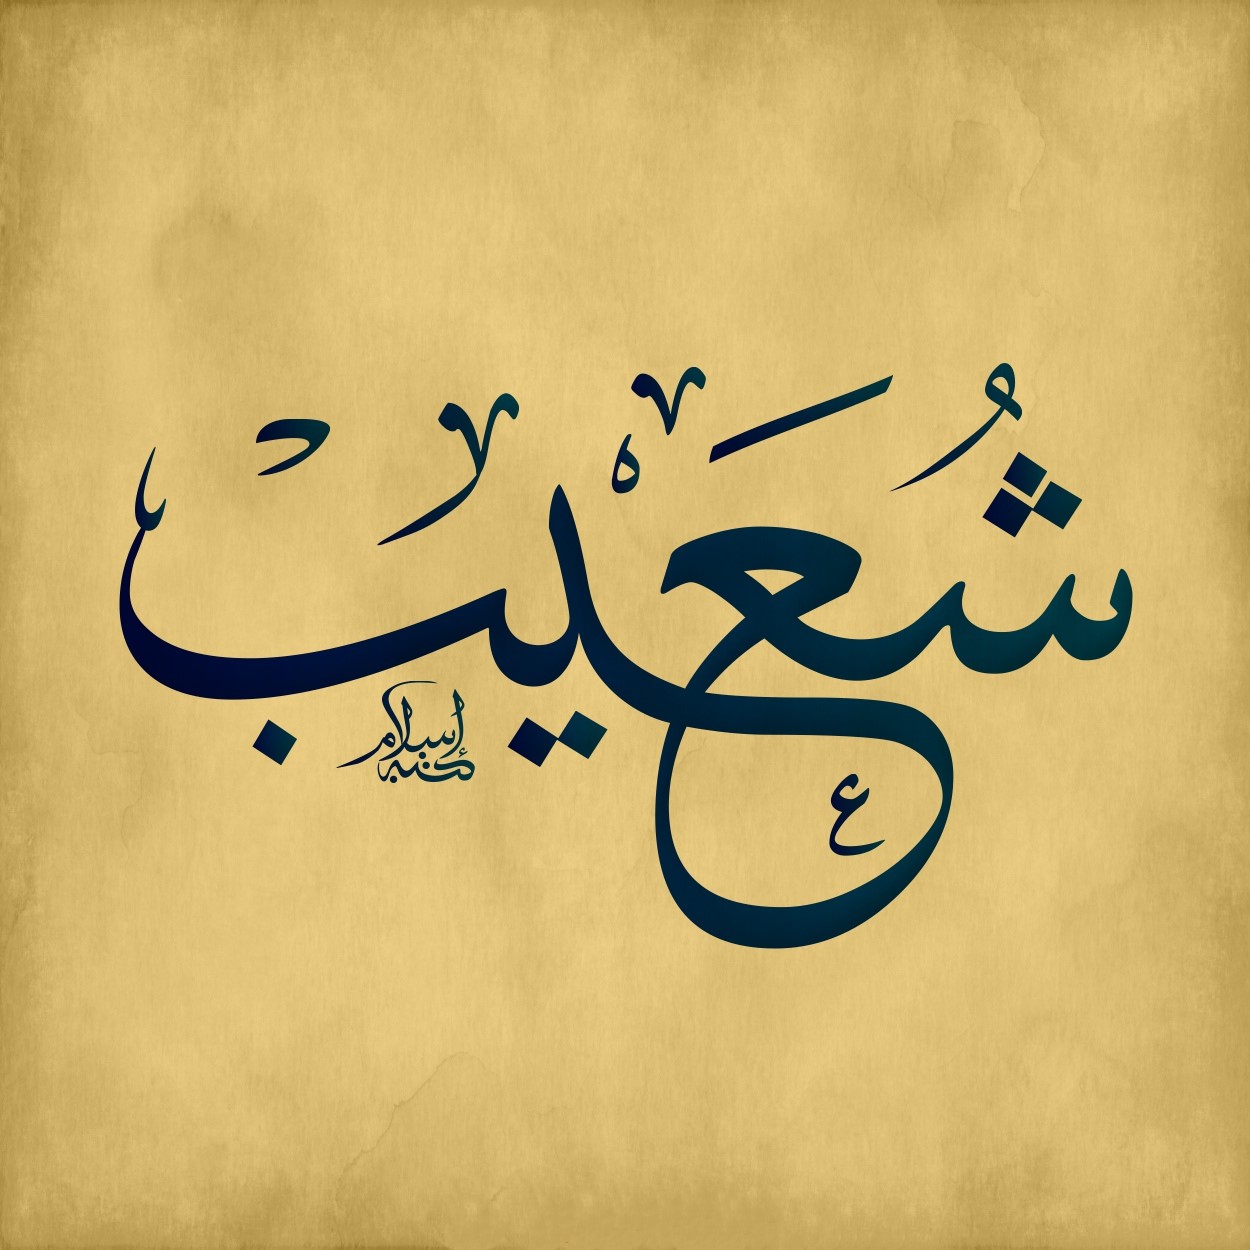 شُعَيب
كتبه إسلام